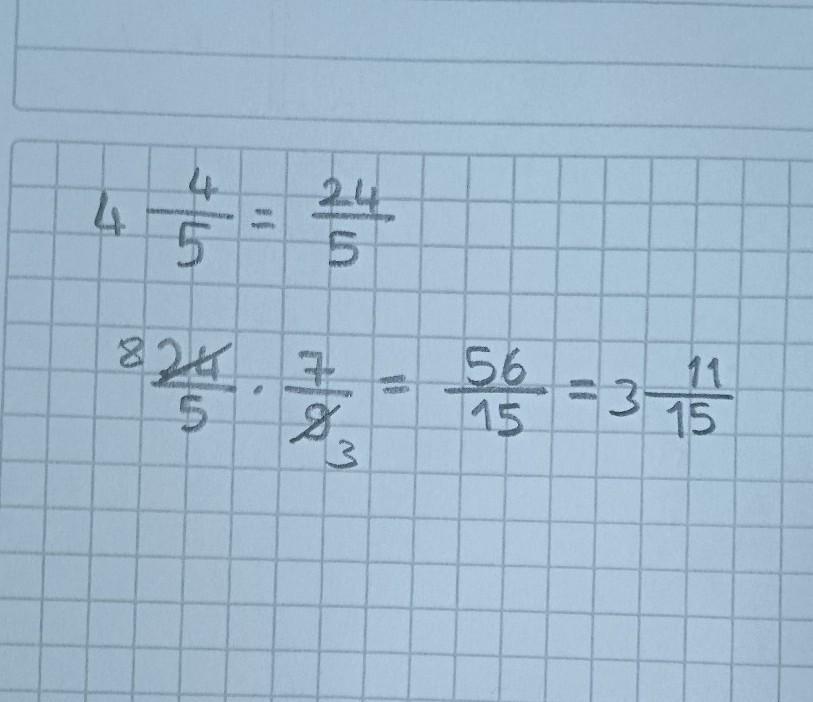 4 4/5 = 24/5
8 24/5 · 7/9 3 = 56/15 = 3 11/15